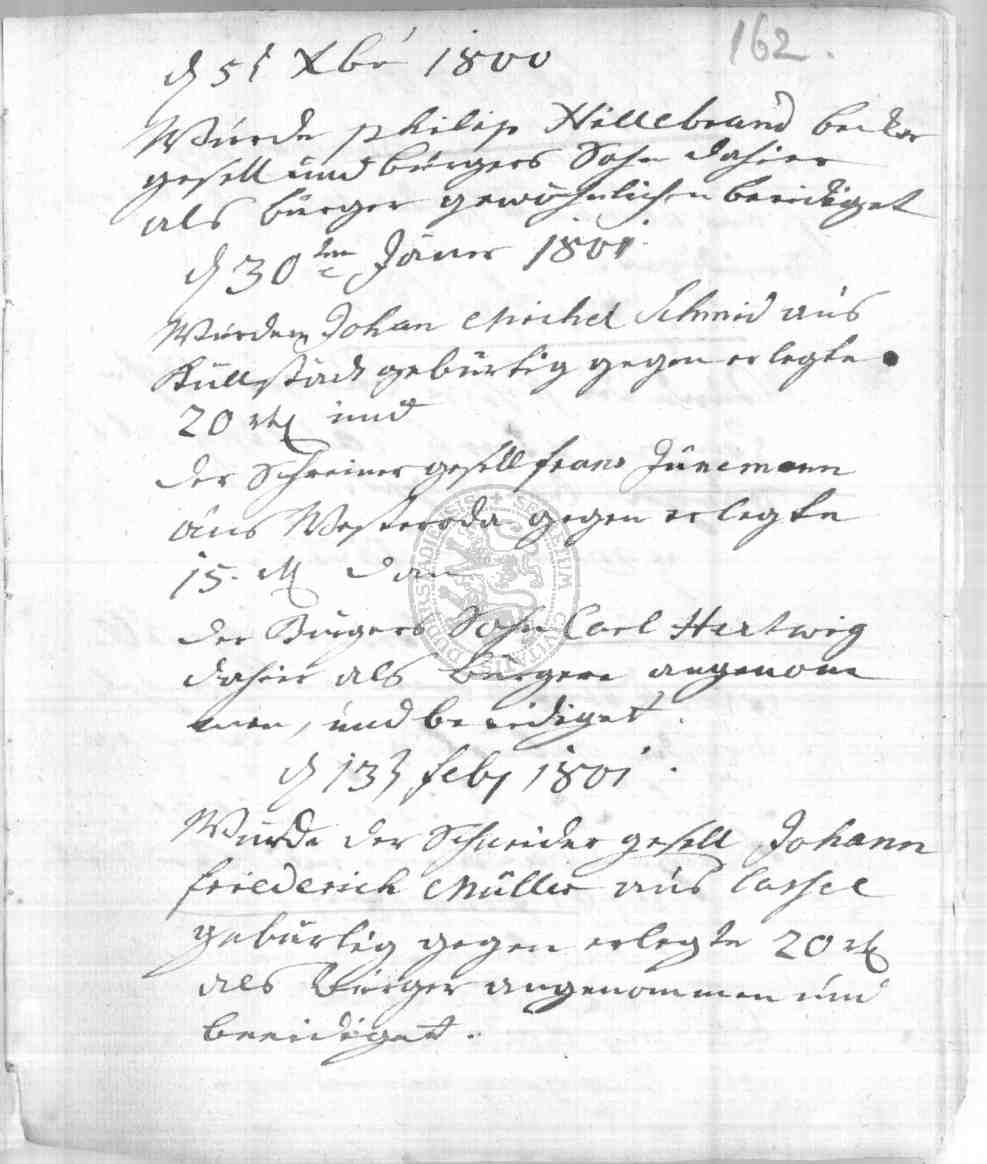 162.
d 5t Xbr 1800
Wurde Philip Hillebrand becker
gesell und bürgers Sohn dahier
als bürger gewöhnlichen beeidiget
d 30ten Jäner 1801.
Wurden Johan Michel Schmid aus
Küllstädt gebürtig gegen erlegte
20 rtl und
der Schreiner gesell frans Jünemann
aus Westeroda gegen erlegte
15. M dan
der Bürgers Sohn Carl Hartwig
dahier als Bürgere angenom
men, und beeidiget.
d 13t feb 1801.
Wurde der Schneider gesell Johann
friederich Müller aus Cassel
gebürtig gegen erlegte 20 rtl
als Bürger angenommen und
beeidiget.
SIGILLUM CIVITATIS DUDERSTADIENSIS